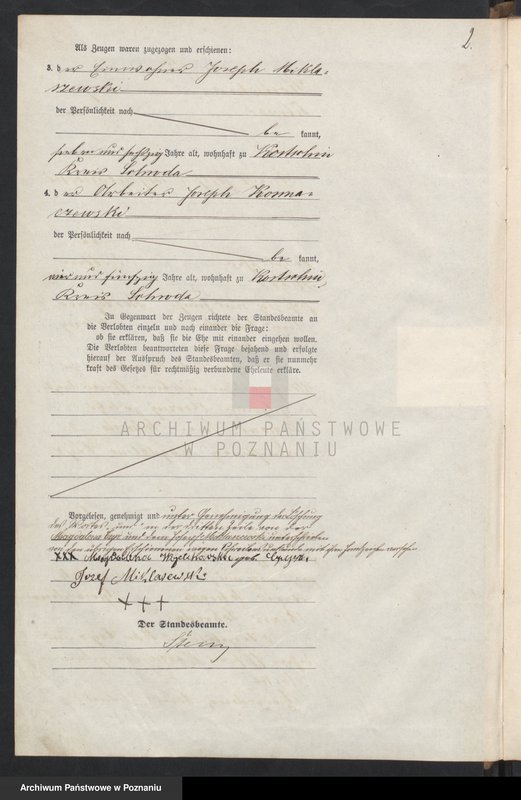 2.
Als Zeugen waren zugezogen und erschienen:
3. der Einwohner Joseph Mikla-
szewski
der Persönlichkeit nach
be kannt,
sieben und sechzig Jahre alt, wohnhaft zu Kostschin
Kreis Schroda
4. der Arbeiter Joseph
czewski
der Persönlichkeit nach
be kannt,
vier und fünfzig Jahre alt, wohnhaft zu Kostschin,
Kreis Schroda
In Gegenwart der Zeugen richtete der Standesbeamte an
die Verlobten einzeln und nach einander die Frage:
ob sie erklären, daß sie die Ehe mit einander eingehen wollen.
Die Verlobten beantworteten diese Frage bejahend und erfolgte
hierauf der Ausspruch des Standesbeamten, daß er sie nunmehr
kraft des Gesetzes für rechtmäßig verbundene Eheleute erkläre.
ARCHIWUM PAŃSTWOWE
W POZNANIU
Vorgelesen, genehmigt und unter Genehmigung der Löschung
des Wortes "und" in der dritten Zeile von der
Magdalena und dem Joseph Miklaszewski unterschrieben
von den übrigen Erschienenen wegen Schreibensunkunde mit ihren Handzeichen versehen
XXX Magdalena geb.
Jozef Miklasewski
+++
Der Standesbeamte.
Archiwum Państwowe w Poznaniu